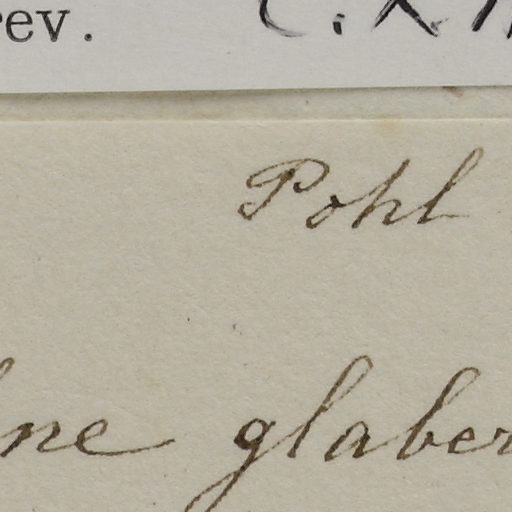 rev.
Pohl
ne glaber